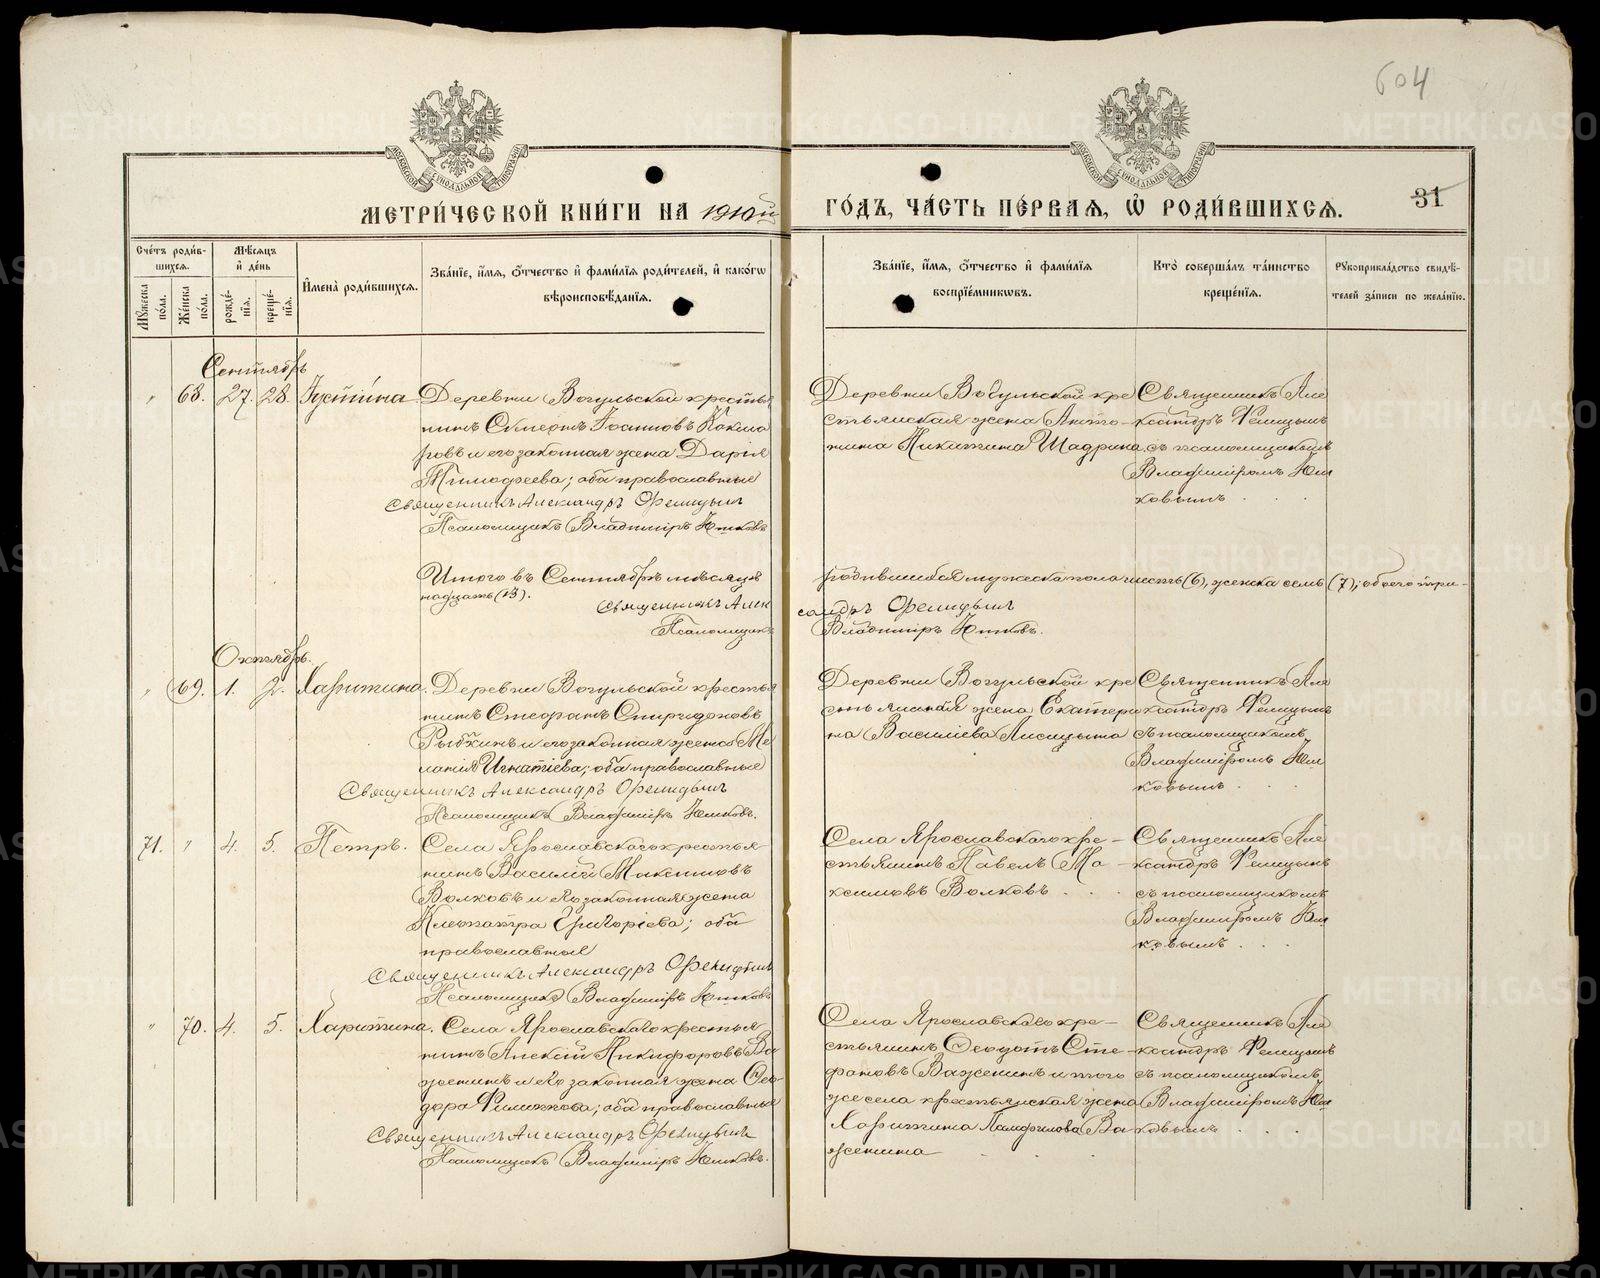 604
МОСКОВСКОЙ СѴНОДАЛЬНОЙ ТИПОГРАФІИ
МОСКОВСКОЙ СѴНОДАЛЬНОЙ ТИПОГРАФІИ
МЕТРИ́ЧЕСКОЙ КНИ́ГИ НА 1910й ГО́ДЪ, ЧА́СТЬ ПЕ́РВАЯ, Ѽ РОДИ́ВШИХСЯ.
31
Сче́тъ роди́вшихся.
Мѣ́сяцъ и҆ де́нь
Мꙋ́жеска по́ла.
Же́нска по́ла.
рожде́нїя.
креще́нїя.
И҆мена̀ роди́вшихся.
Зва́нїе, и҆́мя, ѻ҆́тчество и҆ фами́лїя роди́телей, и҆ како́гѡ вѣроисповѣ́данїя.
Зва́нїе, и҆́мя, ѻ҆́тчество и҆ фами́лїя воспрїе́мникѡвъ.
Кто̀ соверша́лъ та́инство креще́нїя.
Рꙋкоприкла́дство свидѣ́телей за́писи по жела́нїю.
Сентябрь
" 68. 27. 28. Іустина. Деревни Вогульской крестья
нинъ Симеонъ Іоанновъ
ровъ и его законная жена Дарія
Тимофеева; оба православные
Священникъ Александръ
Псаломщикъ Владиміръ Юшковъ
Деревни Вогульской кре
стьянская жена Анто-
нина Никитина Шадрина
Священникъ Але
ксандръ
съ псаломщикомъ
Владиміромъ Юш
ковымъ . .
Итого въ Сентябрѣ мѣсяцѣ родившихся мужеска пола шесть (6), женска семь (7); обоего три-
надцать (13).
Священникъ Александръ
Псаломщикъ Владиміръ Юшковъ.
Октябрь.
" 69. 1. 2. Харитина. Деревни Вогульской крестья
нинъ Стефанъ Спиридоновъ
Рыбкинъ и его законная жена Ме
ланія Игнатіева; оба православные
Священникъ Александръ
Псаломщикъ Владиміръ Юшковъ.
Деревни Вогульской кре
стьянская жена Екатери
на Василіева Лисицына
Священникъ Але
ксандръ
съ псаломщикомъ
Владиміромъ Юш
ковымъ . .
71. " 4. 5. Петръ. Села Ярославскаго крестья-
нинъ Василій Максимовъ
Волковъ и его законная жена
Клеопатра Григоріева; оба
православные
Священникъ Александръ
Псаломщикъ Владиміръ Юшковъ
Села Ярославскаго кре-
стьянинъ Павелъ Ма-
ксимовъ Волковъ . . .
Священникъ Але
ксандръ
съ псаломщикомъ
Владиміромъ Юш
ковымъ . . .
" 70. 4. 5. Харитина. Села Ярославскаго крестья
нинъ Алексій Никифоровъ Ва
женинъ и его законная жена Ѳео-
дора Филиппова; оба православные
Священникъ Александръ
Псаломщикъ Владиміръ Юшковъ.
Села Ярославскаго кре-
стьянинъ Ѳеодотъ Сте-
фановъ Важенинъ и того
же села крестьянская жена
Харитина Памфилова Ва-
женина
Священникъ Але
ксандръ
съ псаломщикомъ
Владиміромъ Юш
ковымъ . . .
METRIKI.GASO-URAL.RU